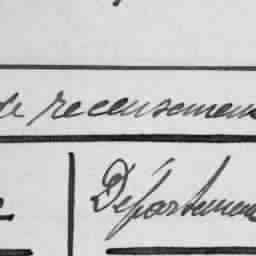 de recensemen
Départemen